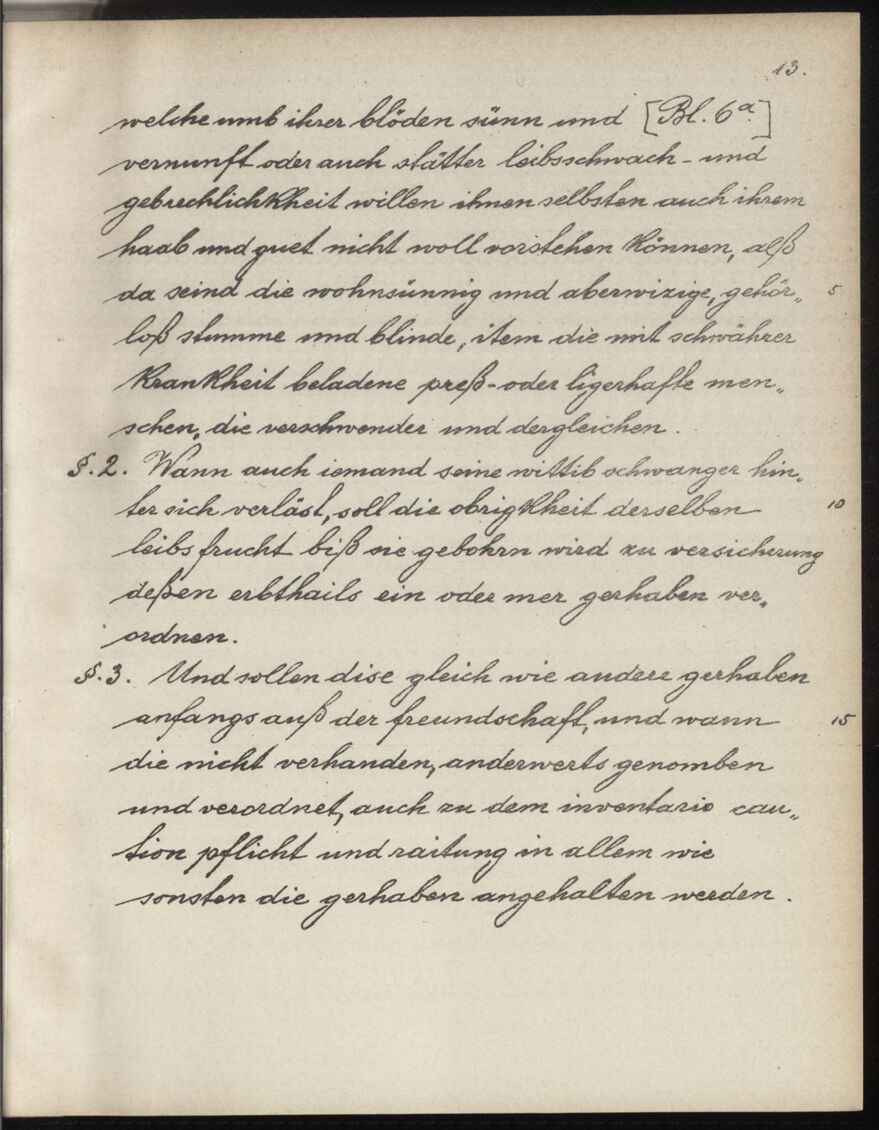 13.
welche umb ihrer blöden sünn und [Bl. 6a.]
vernunfft oder auch stätter leibsschwach- und
gebrechlichkheit willen ihnen selbsten auch ihrem
haab und guet nicht woll vorstehen können, alß
da seind die wohnsünnig und aberwizige, gehör„ 5
loß stumme und blinde, item die mit schwährer
krankheit beladene preß- oder ligerhafte men„
schen, die verschwender und dergleichen.
§. 2. Wann auch iemand seine wittib schwanger hin„
ter sich verläst, soll die obrigkheit derselben 10
leibsfrucht biß sie gebohrn wird zu versicherung
deßen erbthails ein oder mer gerhaben ver„
ordnen.
§. 3. Und sollen dise gleich wie andere gerhaben
anfangs auß der freundschaft, und wann 15
die nicht verhanden, anderwerts genomben
und verordnet, auch zu dem inventario cau„
tion pflicht und raitung in allem wie
sonsten die gerhaben angehalten werden.